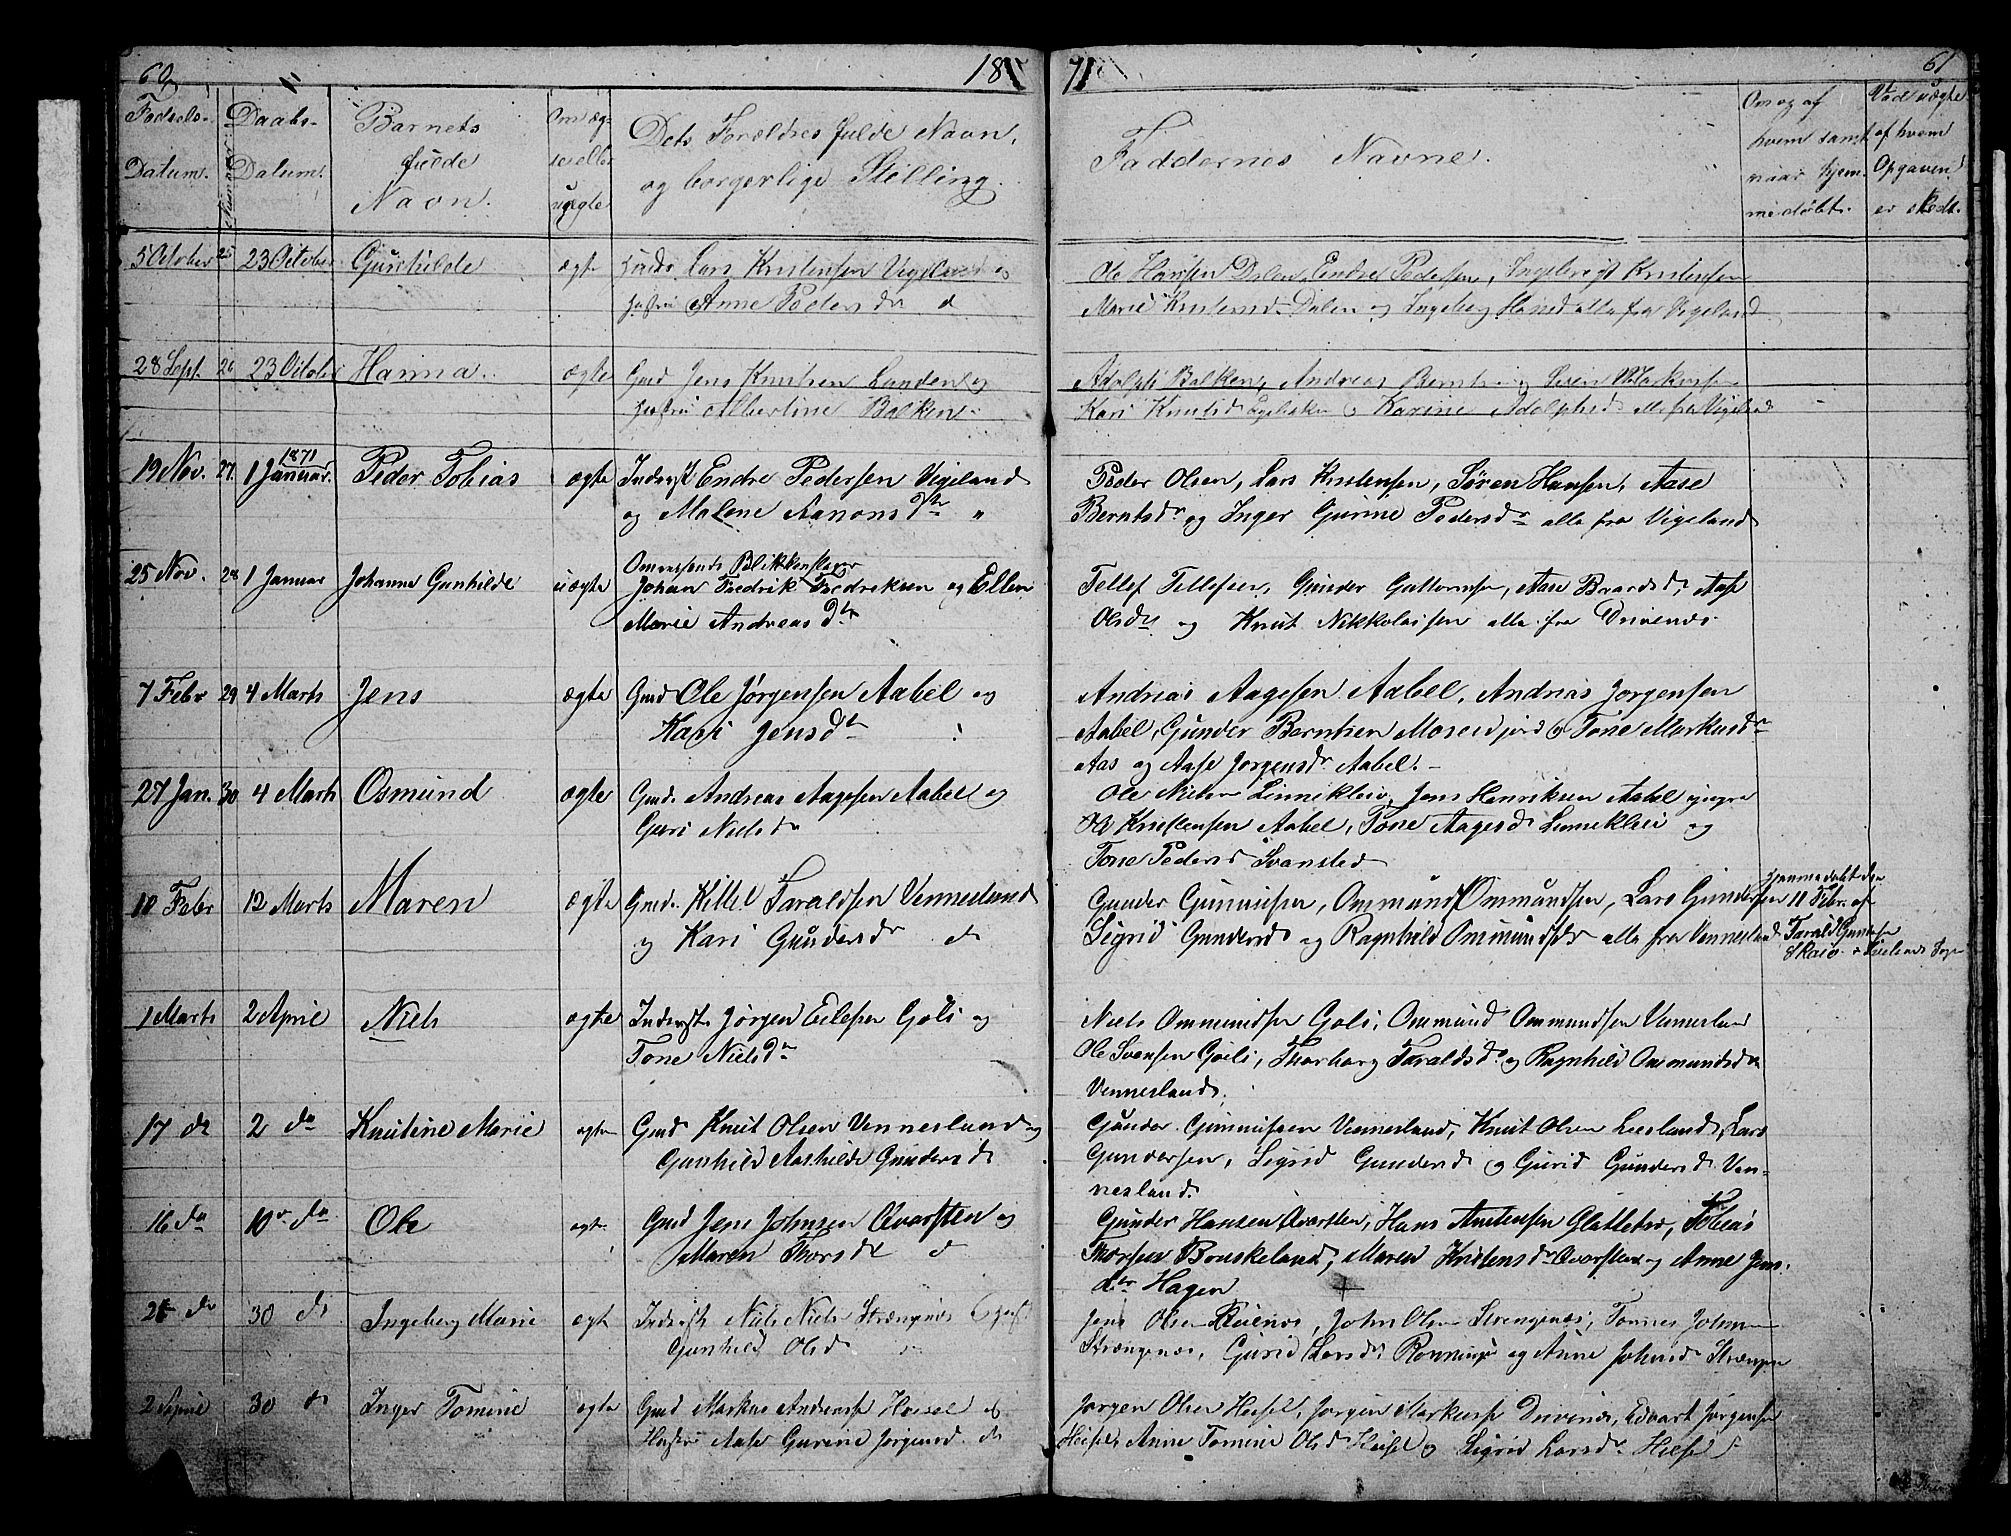 60
18 71
61
Fødsels- Datum. Nummer Daabs- Datum. Barnets fulde Navn. Om ægte eller uægte Dets Forældres fulde Navn, og borgerlige Stilling. Faddernes Navne. Om og af hvem samt naar hjemmedøbt. Ved uægte af hvem Opgaven er skedt.
5 October 25 23 October Gunhilde ægte Lars Kristensen Vigeland og
Anne Peders dr
Ole Hansen Dalen, Endre Pedersen, Ingebregt Kristensen
Marie Kristensd Dalen og Ingeborg Hansd alle fra Vigeland
28 Sept. 26 23 October Hanna. ægte Gmd Jens Knutsen Lunden og
Hustru Albertine Balken
Adolph Balken, Andreas Berntsen og Søren Markussen
Kari Knutsd og Karine Adolphsd alle fra Vigeland
19 Nov. 27. 1 1871 Januar. Peder Tobias ægte Inderst Endre Pedersen Vigeland
og Malene Aanons dtr "
Peder Olsen, Lars Kristensen, Søren Hansen, Aase
Berntsdr og Inger Gurine Pedersdr alle fra Vigeland
25 Nov. 28 1 Januar Johanne Gunhilde uægte Omreisende Blikkenslager
Johan Fredrik Fredriksen og Ellen
Marie Andreas dtr
Tellef Tellefsen, Gunder Guttormsen, Aase Baardsd, Aase
Olsdr og Knut Nikkolaisen alle fra Drivenes.
7 Febr 29 4 Marts Jens ægte Gmd Ole Jørgensen Aabel og
Kari Jensdtr
Andreas Aagesen Aabel, Andreas Jørgensen
Aabel, Gunder Berntsen Moseidjord og Tone Markusdr
Aas og Aase Jørgensdr Aabel. -
27 Jan. 30 4 Marts Osmund ægte Gmd. Andreas Aagesen Aabel og
Guri Nielsdr
Ole Nielsen Linnikleiv, Jens Henriksen Aabel yngre
Ole Kristensen Aabel, Tone Aagesd Linnekleiv og
Tone Pedersd Svansted
10 Febr 12 Marts Maren ægte Gmd. Kittel Taraldsen Vennesland
og Kari Gundersdr do
Gunder Gunnufsen, Ommund Ommundsen, Lars Gundersen
Sigrid Gundersd og Ragnhild Ommundsdr alle fra Vennesland
hjemmedøbt den
11 Febr. af
Tarald Gundersen
1 Marts 2 April Niels ægte Inderst Jørgen Eilefsen Gols og
Tone Nielsdtr
Niels Ommundsen Gols, Ommund Ommundsen Vennesland
Ole Svensen Gols, Thorborg Taraldsdr og Ragnhild Ommundsdr
Vennesland.
17 do 2 do Knutine Marie ægte Gmd Knut Olsen Vennesland og
Gunhild Aashilde Gundersd
Gunder Gunnufsen Vennesland, Knut Olsen Lieland, Lars
Gundersen, Sigrid Gundersd og Gurid Gundersd Ven-
nesland.
16 do 10 do Ole ægte Gmd Jens Johnsen Qvarsten og
Maren Thorsdr do
Gunder Hansen Qvarsten, Hans Anstensen Glattetre, Tobias
Thorsen Bruskeland, Maren Kristensdr Qvarsten og Anne Jens
dtr Hagen
21 do 30 do Ingeborg Marie ægte Inderst Niels Niels Strængnæs
Gunhild Olsd
Jens Olsen Røienæs, John Olsen Strengenæs, Tomes Johnsen
Strængenæs, Gurid Larsdr Ronninge og Anne Johnsd Strængn
2 April 30 do Inger Tomine ægte Gmd Markus Andersen Heisel og
Hustru Aase Gurine Jørgensd do
Jørgen Olsen Heisel, Jørgen Markusen Drivenæs, Edvart Jørgensen
Heisel, Anne Tomine Olsd Heisel og Sigrid Larsdr Heisel